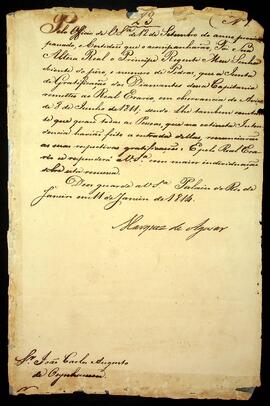 23
N 1
Pelo Officio de V.Sª de 12 de Setembro do anno proximo
passado, e documentos que o acompanhão, fez
Alteza Real o Principe Regente Meu Senhor
do pezo, e numero de Pedras, que a Junta
da Gratificação dos Diamantes dessa Capitania
remetteo ao Real Erario em observancia do Aviso
de 7 de Junho de 1811, sendo lhe tambem
te quaes todas as Pessoas, que na extincta Inten
dencia havião feito a entrada dellas,
as suas respectivas gratificações: E pelo Real Era
rio se responderá a V.Sª com maior individuação
sobre esta remessa.
Deos guarde a V.Sª Palacio do Rio de
Janeiro em 11 de Janeiro de 1814.
Marquez de Aguiar
Sr. João Carlos Augusto
de Oeynhausen